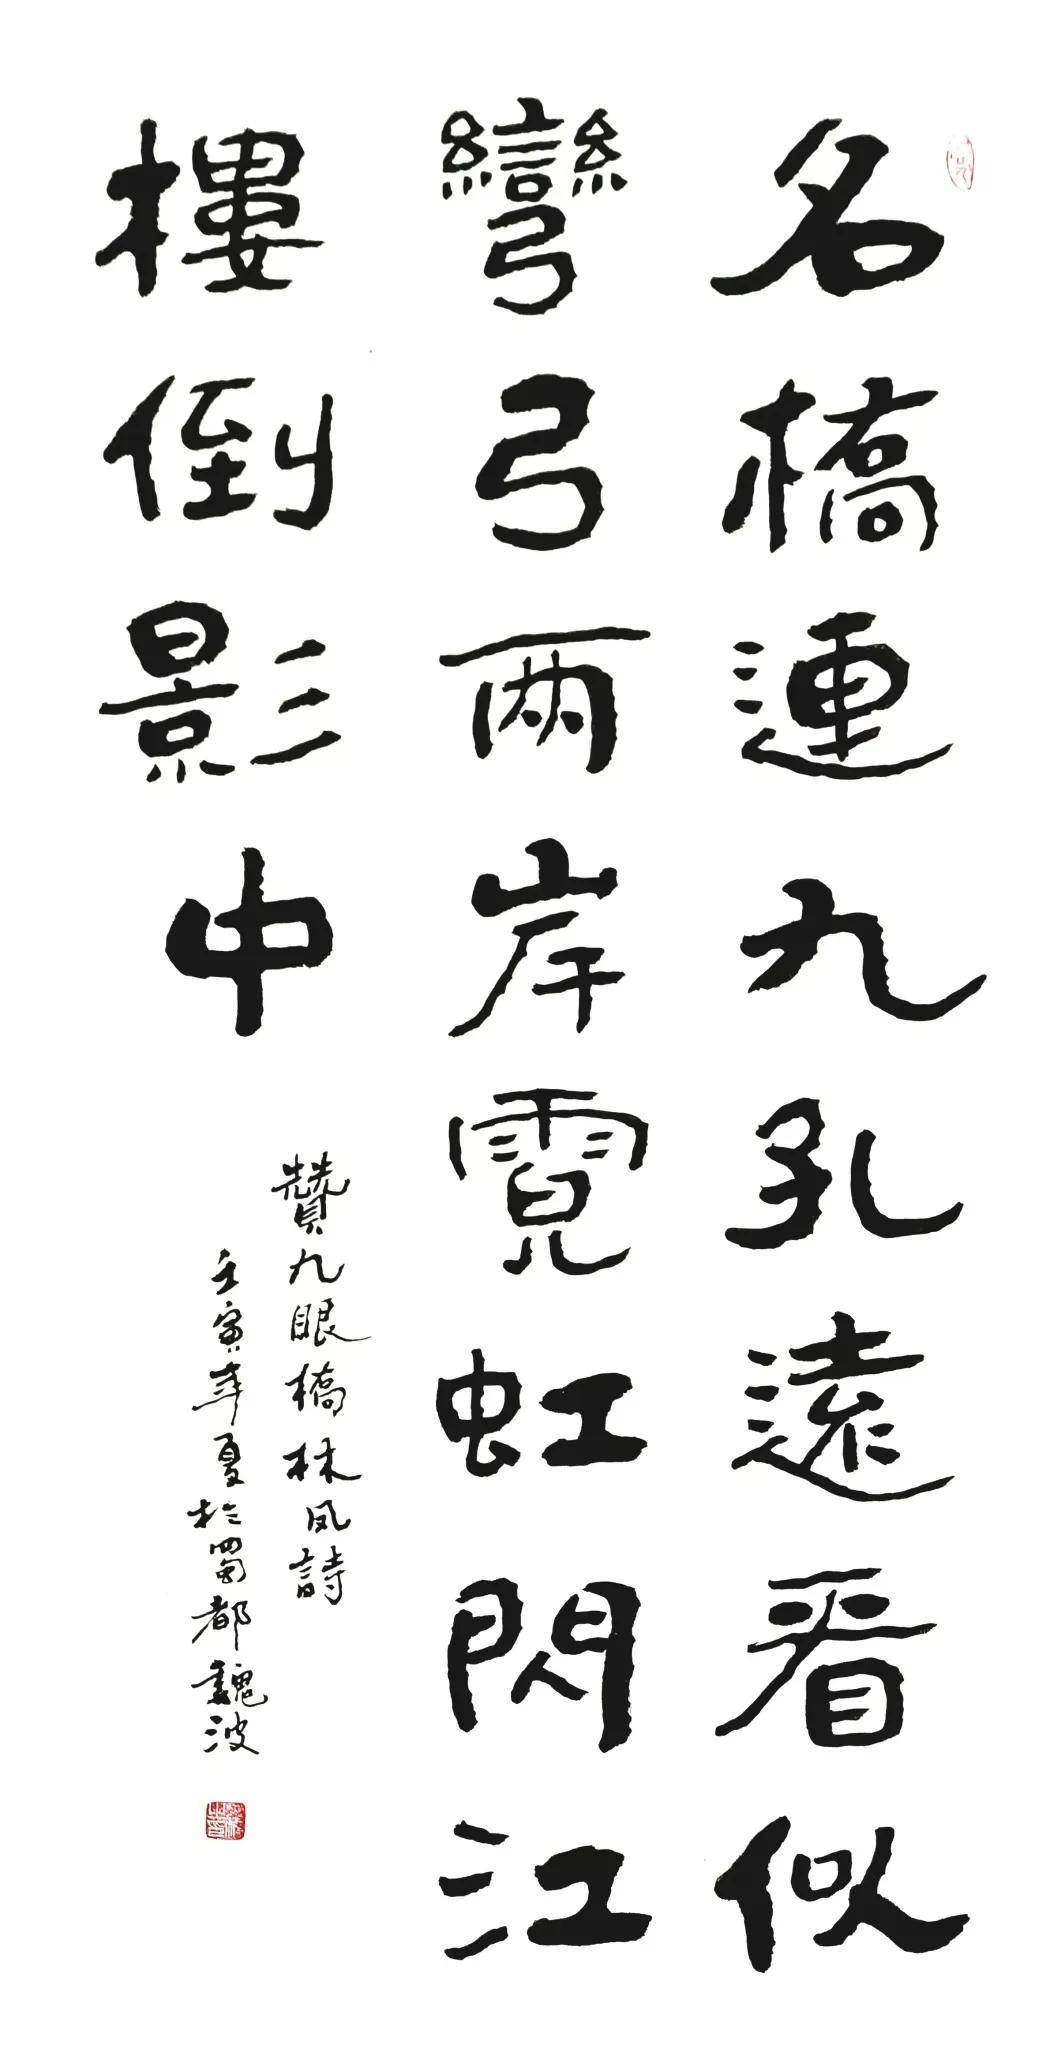 名橋連九孔遠看似
彎弓兩岸霓虹閃江
樓倒影中
贊九眼橋林凤詩
壬寅年夏於蜀都魏波